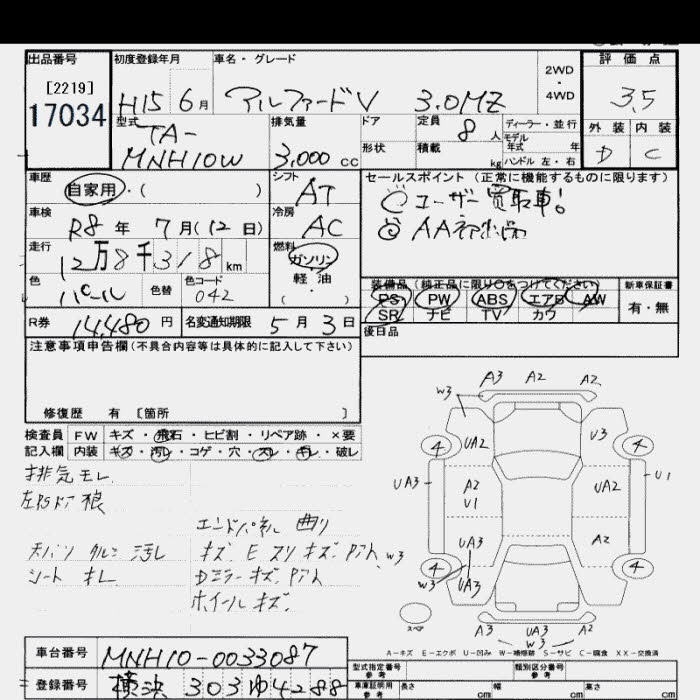 出品番号 初度登録年月 車名・グレード 2WD・4WD 評価点
[2219]
17034 H15 6月 アルファードV 3.0MZ 3.5
型式 TA-MNH10W 排気量 3,000 cc ドア 形状 定員 8人 積載 kg ディーラー・並行 モデル年式 年 ハンドル 左・右 外装 D 内装 C
車歴 自家用・( ) シフト AT セールスポイント (正常に機能するものに限ります)
車検 R8年 7月(12日) 冷房 AC ◎ユーザー買取車!
走行 12万8千318km 燃料 ガソリン 軽油 ( ・ ) ◎AA初出品
色 パール 色替 色コード 042
装備品 (純正品に限り○をつけてください) 新車保証書
PS PW ABS エアB AW 有・無
SR ナビ TV カワ
R券 14,480円 名変通知期限 5月3日 後日品
注意事項申告欄(不具合内容等は具体的に記入して下さい)
修復歴 有 〔箇所 〕
検査員 FW キズ・飛石・ヒビ割・リペア跡・×要
記入欄 内装 キズ・汚レ・コゲ・穴・スレ・キレ・破レ
排気モレ
エンドパネル 曲り
シート キレ
Dミラーキズ
ホイールキズ
A3 A2 A2
W3
4 UA2 U3 4
UA3 A2 U1 UA2 U1
UA3 A2
W3
4 W3 UA3 4
スペア
A3 UA3 A3
W3
A-キズ E-エクボ U-凹み W-補修跡 S-サビ C-腐食 XX-交換済
車台番号 MNH10-0033087 型式指定番号 参考 類別区分番号 参考
登録番号 横浜 303 ゆ 4288 車庫証明用 参考 長さ cm 幅 cm 高さ cm